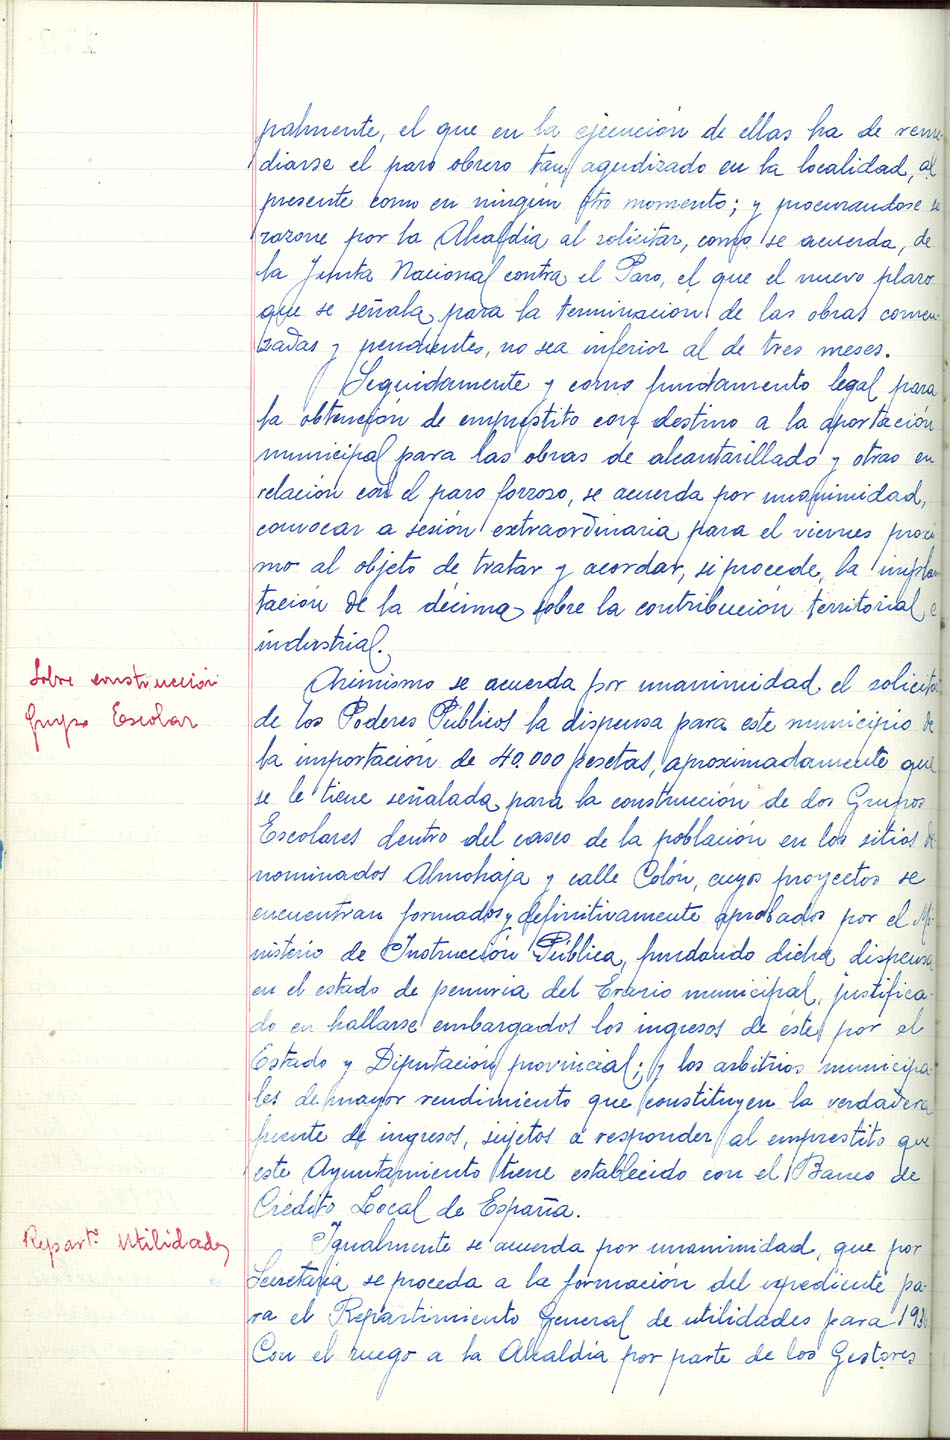 palmente, el que en la ejecución de ellas ha de reme-
diarse el paro obrero tan agudizado en la localidad, al
presente como en ningún otro momento; y procurandose se
razone por la Alcaldia al solicitar, como se acuerda, de
la Junta Nacional contra el Paro, el que el nuevo plazo
que se señala para la terminación de las obras comen-
zadas y pendientes, no sea inferior al de tres meses.
Seguidamente y como fundamento legal para
la obtención de empréstito con destino a la aportación
municipal para las obras de alcantarillado y otras en
relación con el paro forzoso, se acuerda por unanimidad,
convocar a sesión extraordinaria para el viernes proxi
mo al objeto de tratar y acordar, si procede, la implan
tación de la décima sobre la contribución territorial e
industrial.
Sobre construcción
Grupo Escolar
Asimismo se acuerda por unanimidad el solicitar
de los Poderes Públicos la dispensa para este municipio de
la importación de 40.000 pesetas, aproximadamente que
se le tiene señalada para la construcción de dos Grupos
Escolares dentro del casco de la población en los sitios de
nominados Almohaja y calle Colón, cuyos proyectos se
encuentran formados y definitivamente aprobados por el Mi-
nisterio de Instrucción Pública, fundando dicha dispensa
en el estado de penuria del Erario municipal, justifica-
do en hallarse embargados los ingresos de éste por el
Estado y Diputación provincial; y los arbitrios municipa-
les de mayor rendimiento que constituyen la verdadera
fuente de ingresos, sujetos a responder al emprestito que
este Ayuntamiento tiene establecido con el Banco de
Crédito Local de España.
Repart.º Utilidades
Igualmente se acuerda por unanimidad, que por
Secretaría se proceda a la formación del expediente pa-
ra el Repartimiento General de utilidades para 1936
Con el ruego a la Alcaldía por parte de los Gestores